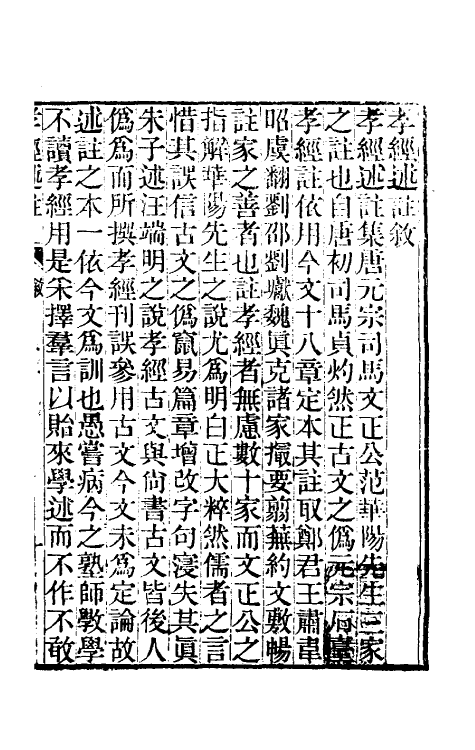 孝經述註敘
孝經述註集唐元宗司馬文正公范華陽先生三家
之註也自唐初司馬貞灼然正古文之僞元宗
孝經註依用今文十八章定本其註取鄭君王肅韋
昭虞翻劉邵劉瓛魏眞克諸家撮要翦蕪約文敷暢
註家之善者也註孝經者無慮數十家而文正公之
指解華陽先生之說尤爲明白正大粹然儒者之言
惜其誤信古文之僞竄易篇章增改字句寖失其眞
朱子述汪端明之說孝經古文與尙書古文皆後人
僞爲而所撰孝經刊誤參用古文今文未爲定論故
述註之本一依今文爲訓也愚嘗病今之塾師敎學
不讀孝經用是采擇羣言以貽來學述而不作不敢
孝經述註 敘